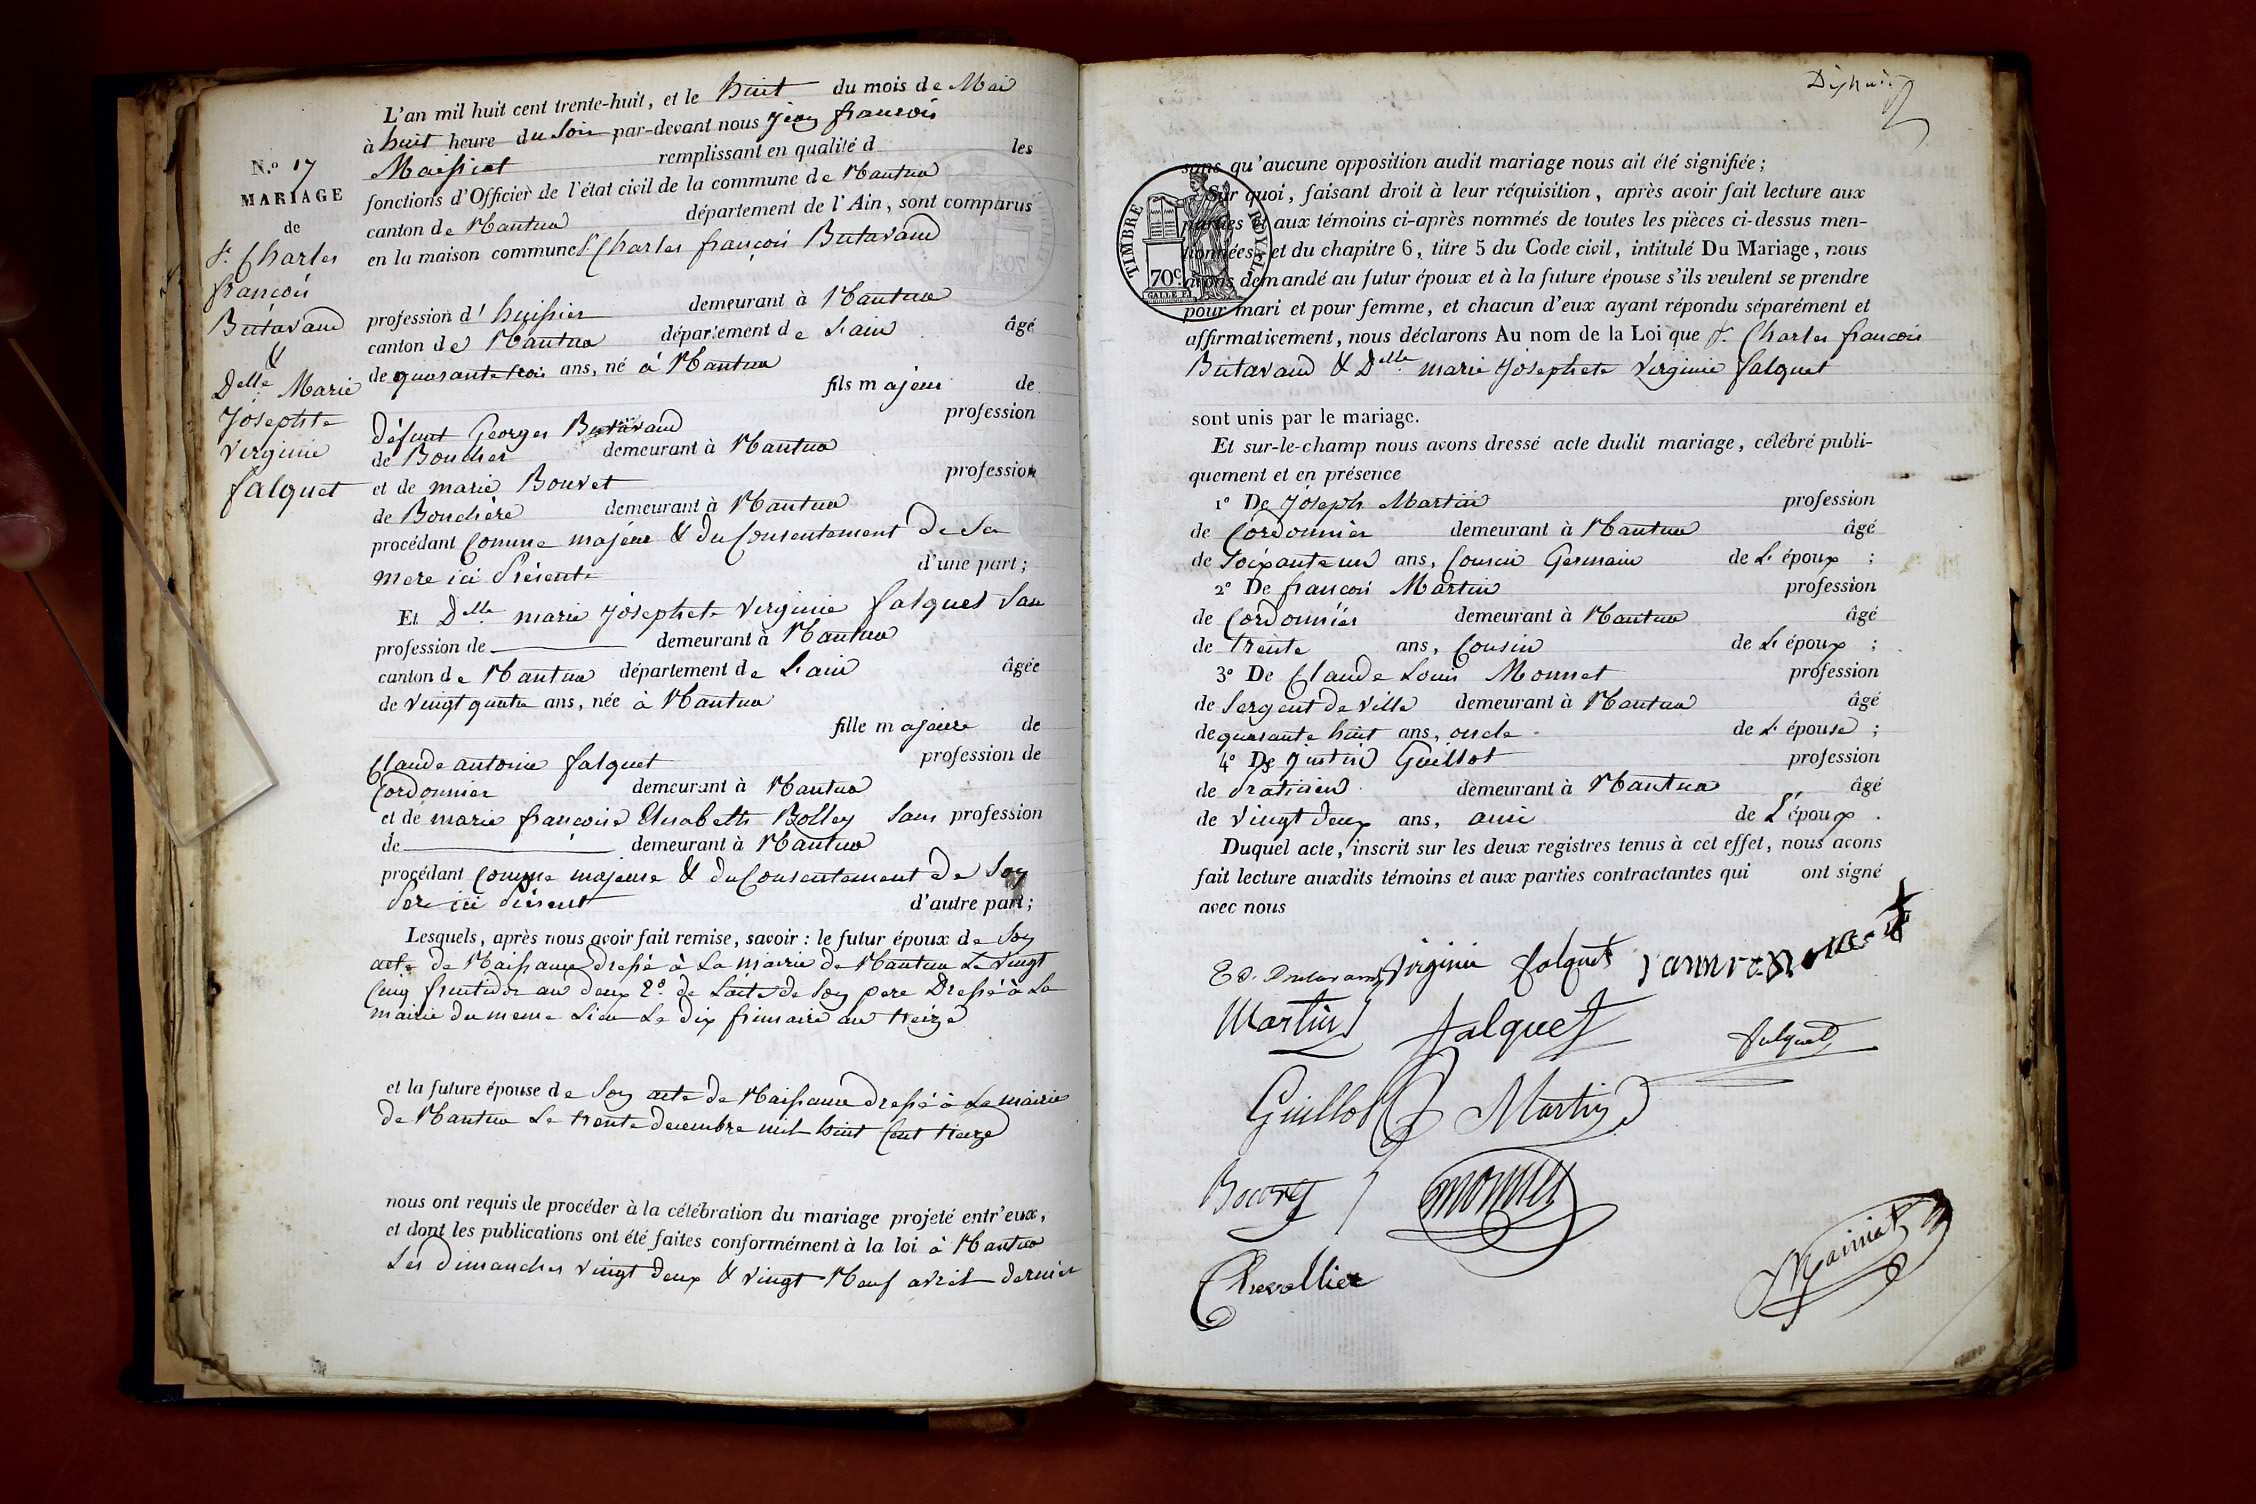 N.o 17
MARIAGE
de
Sr. Charles
françois
Butavand
&
Delle Marie
Josephte
Virginie
falquet
L'an mil huit cent trente-huit, et le huit du mois de Mai
à huit heure du soir par-devant nous jean françois
Maissiat remplissant en qualité d les
fonctions d'Officier de l'état civil de la commune de Nantua
canton de Nantua département de l'Ain, sont comparus
en la maison commune Sr Charles françois Butavand
profession d'huissier demeurant à Nantua
canton de Nantua département de L'ain âgé
de quarante trois ans, né à Nantua
fils majeur de
défunt Georges Butavand profession
de Boucher demeurant à Nantua
et de marie Bouvet profession
de Bouchère demeurant à Nantua
procédant Comme majeur & du Consentement De Sa
mere ici Présente d'une part;
Et Delle marie josephete Virginie falquet San
profession de demeurant à Nantua
canton de Nantua département de L'ain âgée
de vingt quatre ans, née à Nantua
fille majeure de
Claude antoine falquet profession de
Cordonnier demeurant à Nantua
et de marie françoise Elisabeth Bolley Sans profession
de demeurant à Nantua
procédant Comme majeure & du Consentement De Son
Pere ici Présent d'autre part;
Lesquels, après nous avoir fait remise, savoir : le futur époux de Son
acte de Naissance dressé à La mairie de Nantua Le vingt
Cinq fructidor an deux 2o de Lacte de Son pere Dressé à La
mairie du meme Lieu Le dix frimaire an treize
et la future épouse de Son acte de Naissance dressé à La mairie
de Nantua Le trente decembre mil huit Cent treize
nous ont requis de procéder à la célébration du mariage projeté entr'eux,
et dont les publications ont été faites conformément à la loi à Nantua
Les Dimanches vingt deux & vingt Neuf avril dernier
TIMBRE ROYAL
70c
sans qu'aucune opposition audit mariage nous ait été signifiée;
Sur quoi, faisant droit à leur réquisition, après avoir fait lecture aux
parties et aux témoins ci-après nommés de toutes les pièces ci-dessus men-
tionnées, et du chapitre 6, titre 5 du Code civil, intitulé Du Mariage, nous
avons demandé au futur époux et à la future épouse s'ils veulent se prendre
pour mari et pour femme, et chacun d'eux ayant répondu séparément et
affirmativement, nous déclarons Au nom de la Loi que Sr. Charles françois
Butavand & Delle marie josephete Virginie falquet
sont unis par le mariage.
Et sur-le-champ nous avons dressé acte dudit mariage, célébré publi-
quement et en présence
1o De Joseph Martin profession
de Cordonnier demeurant à Nantua âgé
de Soixante un ans, Cousin Germain de L'époux ;
2o De françois Martin profession
de Cordonnier demeurant à Nantua âgé
de trente ans, Cousin de L'époux ;
3o De Claude Louis Monnet profession
de Sergent de ville demeurant à Nantua âgé
de quarante huit ans, oncle de L'épouse ;
4o De justin Guillot profession
de Praticien demeurant à Nantua âgé
de vingt deux ans, ami de L'époux .
Duquel acte, inscrit sur les deux registres tenus à cet effet, nous avons
fait lecture auxdits témoins et aux parties contractantes qui ont signé
avec nous
Virginie falquet
Martin falquet falquet
Guillot Martin
monnet
Chevallier Maissiat